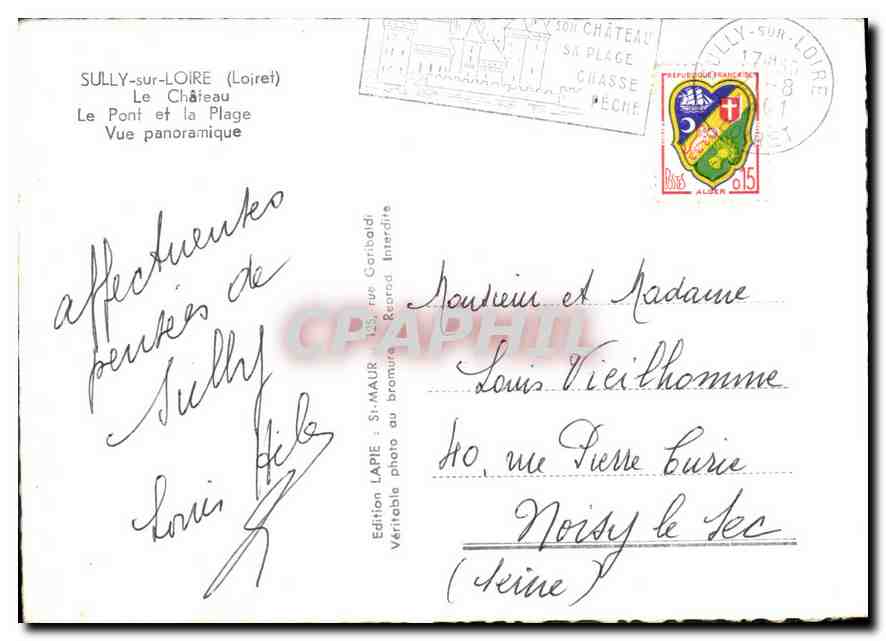 SULLY-sur-LOIRE (Loiret)
Le Château
Le Pont et la Plage
Vue panoramique
SON CHÂTEAU
SA PLAGE
CHASSE
PÊCHE
SULLY-SUR-LOIRE
RÉPUBLIQUE FRANÇAISE
POSTES
ALGER
0,15
affectueuses
pensées de
Sully
Louis
Edition LAPIE : St-MAUR - 125, rue Garibaldi
Véritable photo au bromure - Reprod Interdite
CPAPHIL
Monsieur et Madame
Louis Vieilhomme
40, rue Pierre Curie
Noisy le Sec
(Seine)